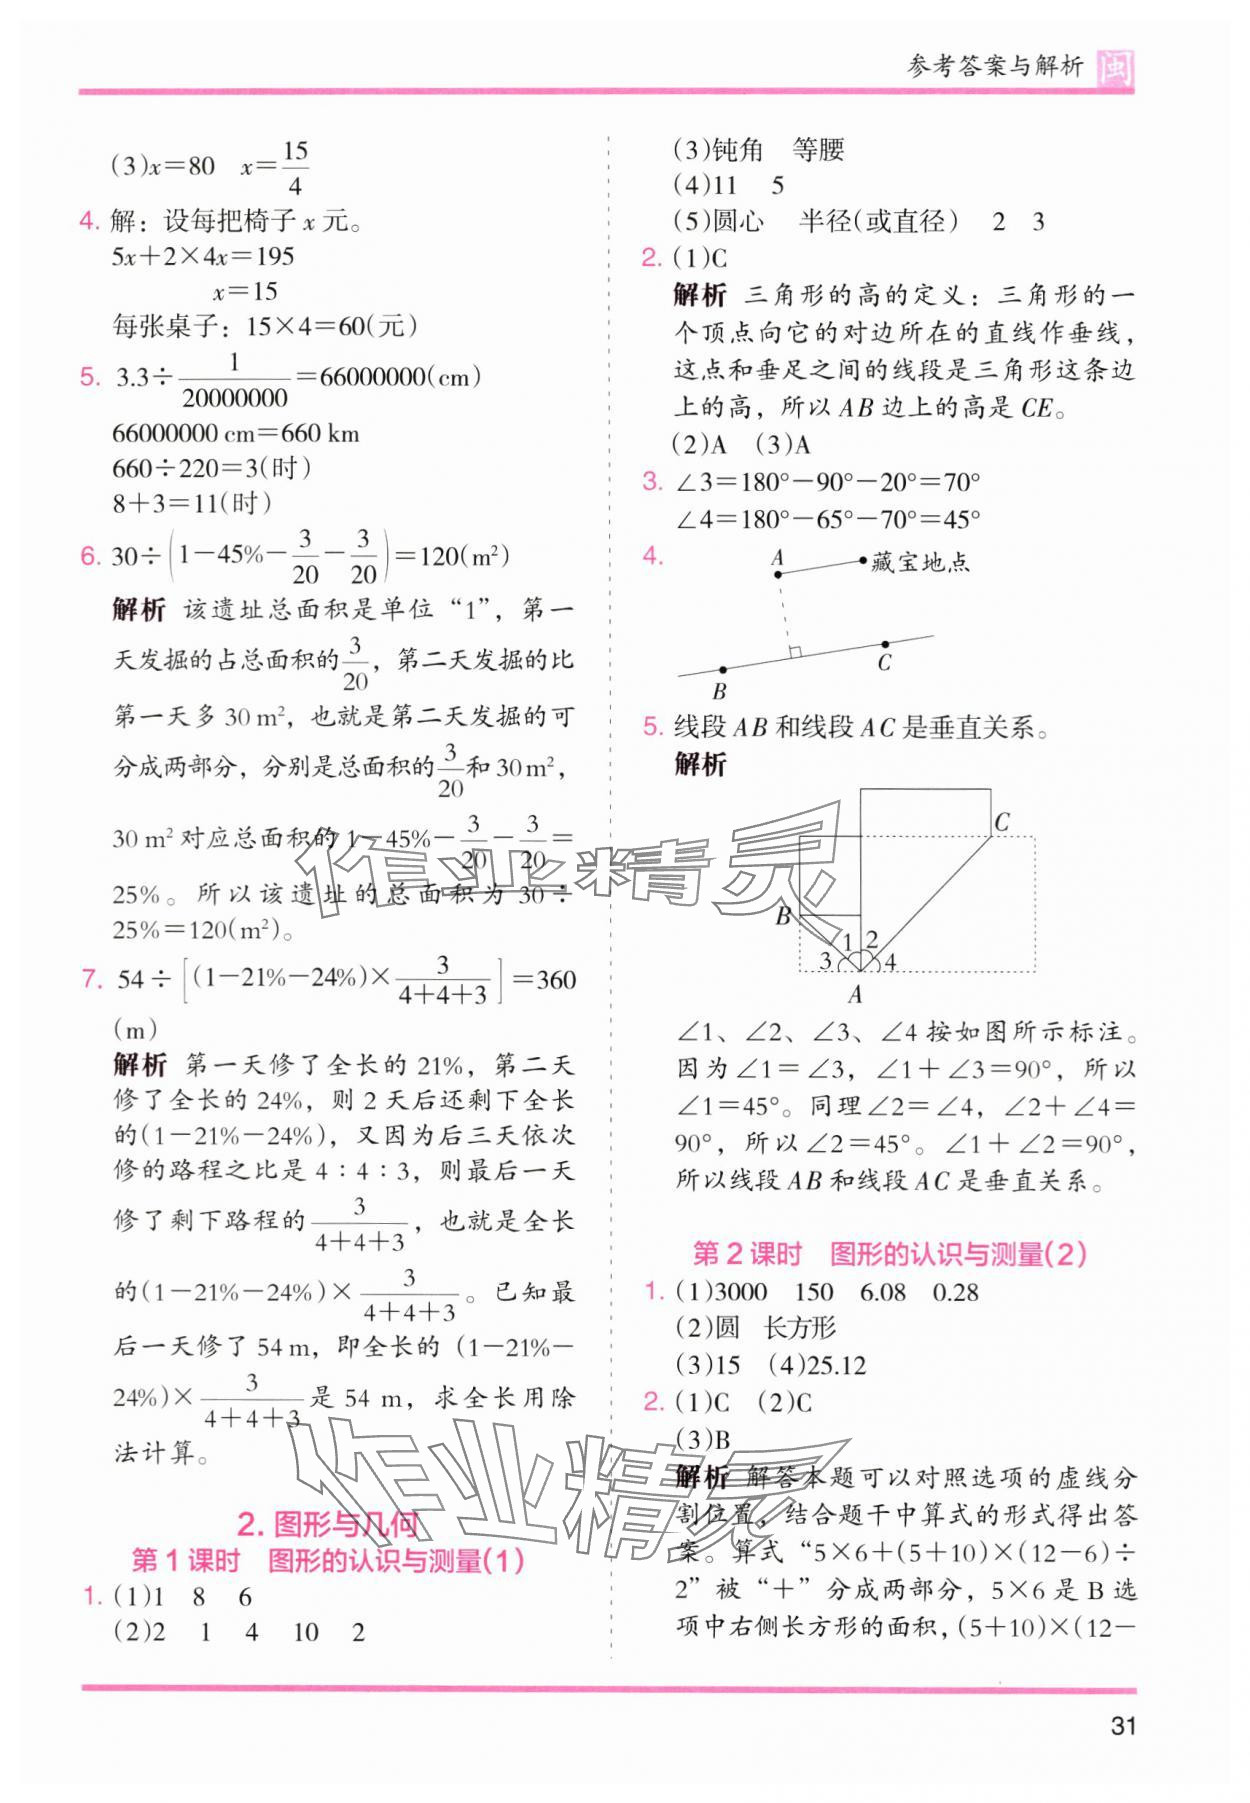 参考答案与解析 闽
(3)x=80 x=15/4
4. 解：设每把椅子 x 元。
5x+2×4x=195
x=15
每张桌子：15×4=60(元)
5. 3.3÷1/20000000=66000000(cm)
66000000 cm=660 km
660÷220=3(时)
8+3=11(时)
6. 30÷(1-45%-3/20-3/20)=120(m²)
解析 该遗址总面积是单位“1”，第一
天发掘的占总面积的3/20，第二天发掘的比
第一天多 30 m²，也就是第二天发掘的可
分成两部分，分别是总面积的3/20和 30 m²，
30 m² 对应总面积的 1-45%-3/20-3/20=
25%。所以该遗址的总面积为 30÷
25%=120(m²)。
7. 54÷[(1-21%-24%)×3/(4+4+3)]=360
(m)
解析 第一天修了全长的 21%，第二天
修了全长的 24%，则 2 天后还剩下全长
的(1-21%-24%)，又因为后三天依次
修的路程之比是 4：4：3，则最后一天
修了剩下路程的3/(4+4+3)，也就是全长
的(1-21%-24%)×3/(4+4+3)。已知最
后一天修了 54 m，即全长的(1-21%-
24%)×3/(4+4+3)是 54 m，求全长用除
法计算。
2. 图形与几何
第 1 课时 图形的认识与测量(1)
1. (1)1 8 6
(2)2 1 4 10 2
(3)钝角 等腰
(4)11 5
(5)圆心 半径(或直径) 2 3
2. (1)C
解析 三角形的高的定义：三角形的一
个顶点向它的对边所在的直线作垂线，
这点和垂足之间的线段是三角形这条边
上的高，所以 AB 边上的高是 CE。
(2)A (3)A
3. ∠3=180°-90°-20°=70°
∠4=180°-65°-70°=45°
4.
A 藏宝地点
C
B
5. 线段 AB 和线段 AC 是垂直关系。
解析
C
B
1 2
3 4
A
∠1、∠2、∠3、∠4 按如图所示标注。
因为∠1=∠3，∠1+∠3=90°，所以
∠1=45°。同理∠2=∠4，∠2+∠4=
90°，所以∠2=45°。∠1+∠2=90°，
所以线段 AB 和线段 AC 是垂直关系。
第 2 课时 图形的认识与测量(2)
1. (1)3000 150 6.08 0.28
(2)圆 长方形
(3)15 (4)25.12
2. (1)C (2)C
(3)B
解析 解答本题可以对照选项的虚线分
割位置，结合题干中算式的形式得出答
案。算式“5×6+(5+10)×(12-6)÷
2”被“+”分成两部分，5×6 是 B 选
项中右侧长方形的面积，(5+10)×(12-
31
作业精灵
作业精灵